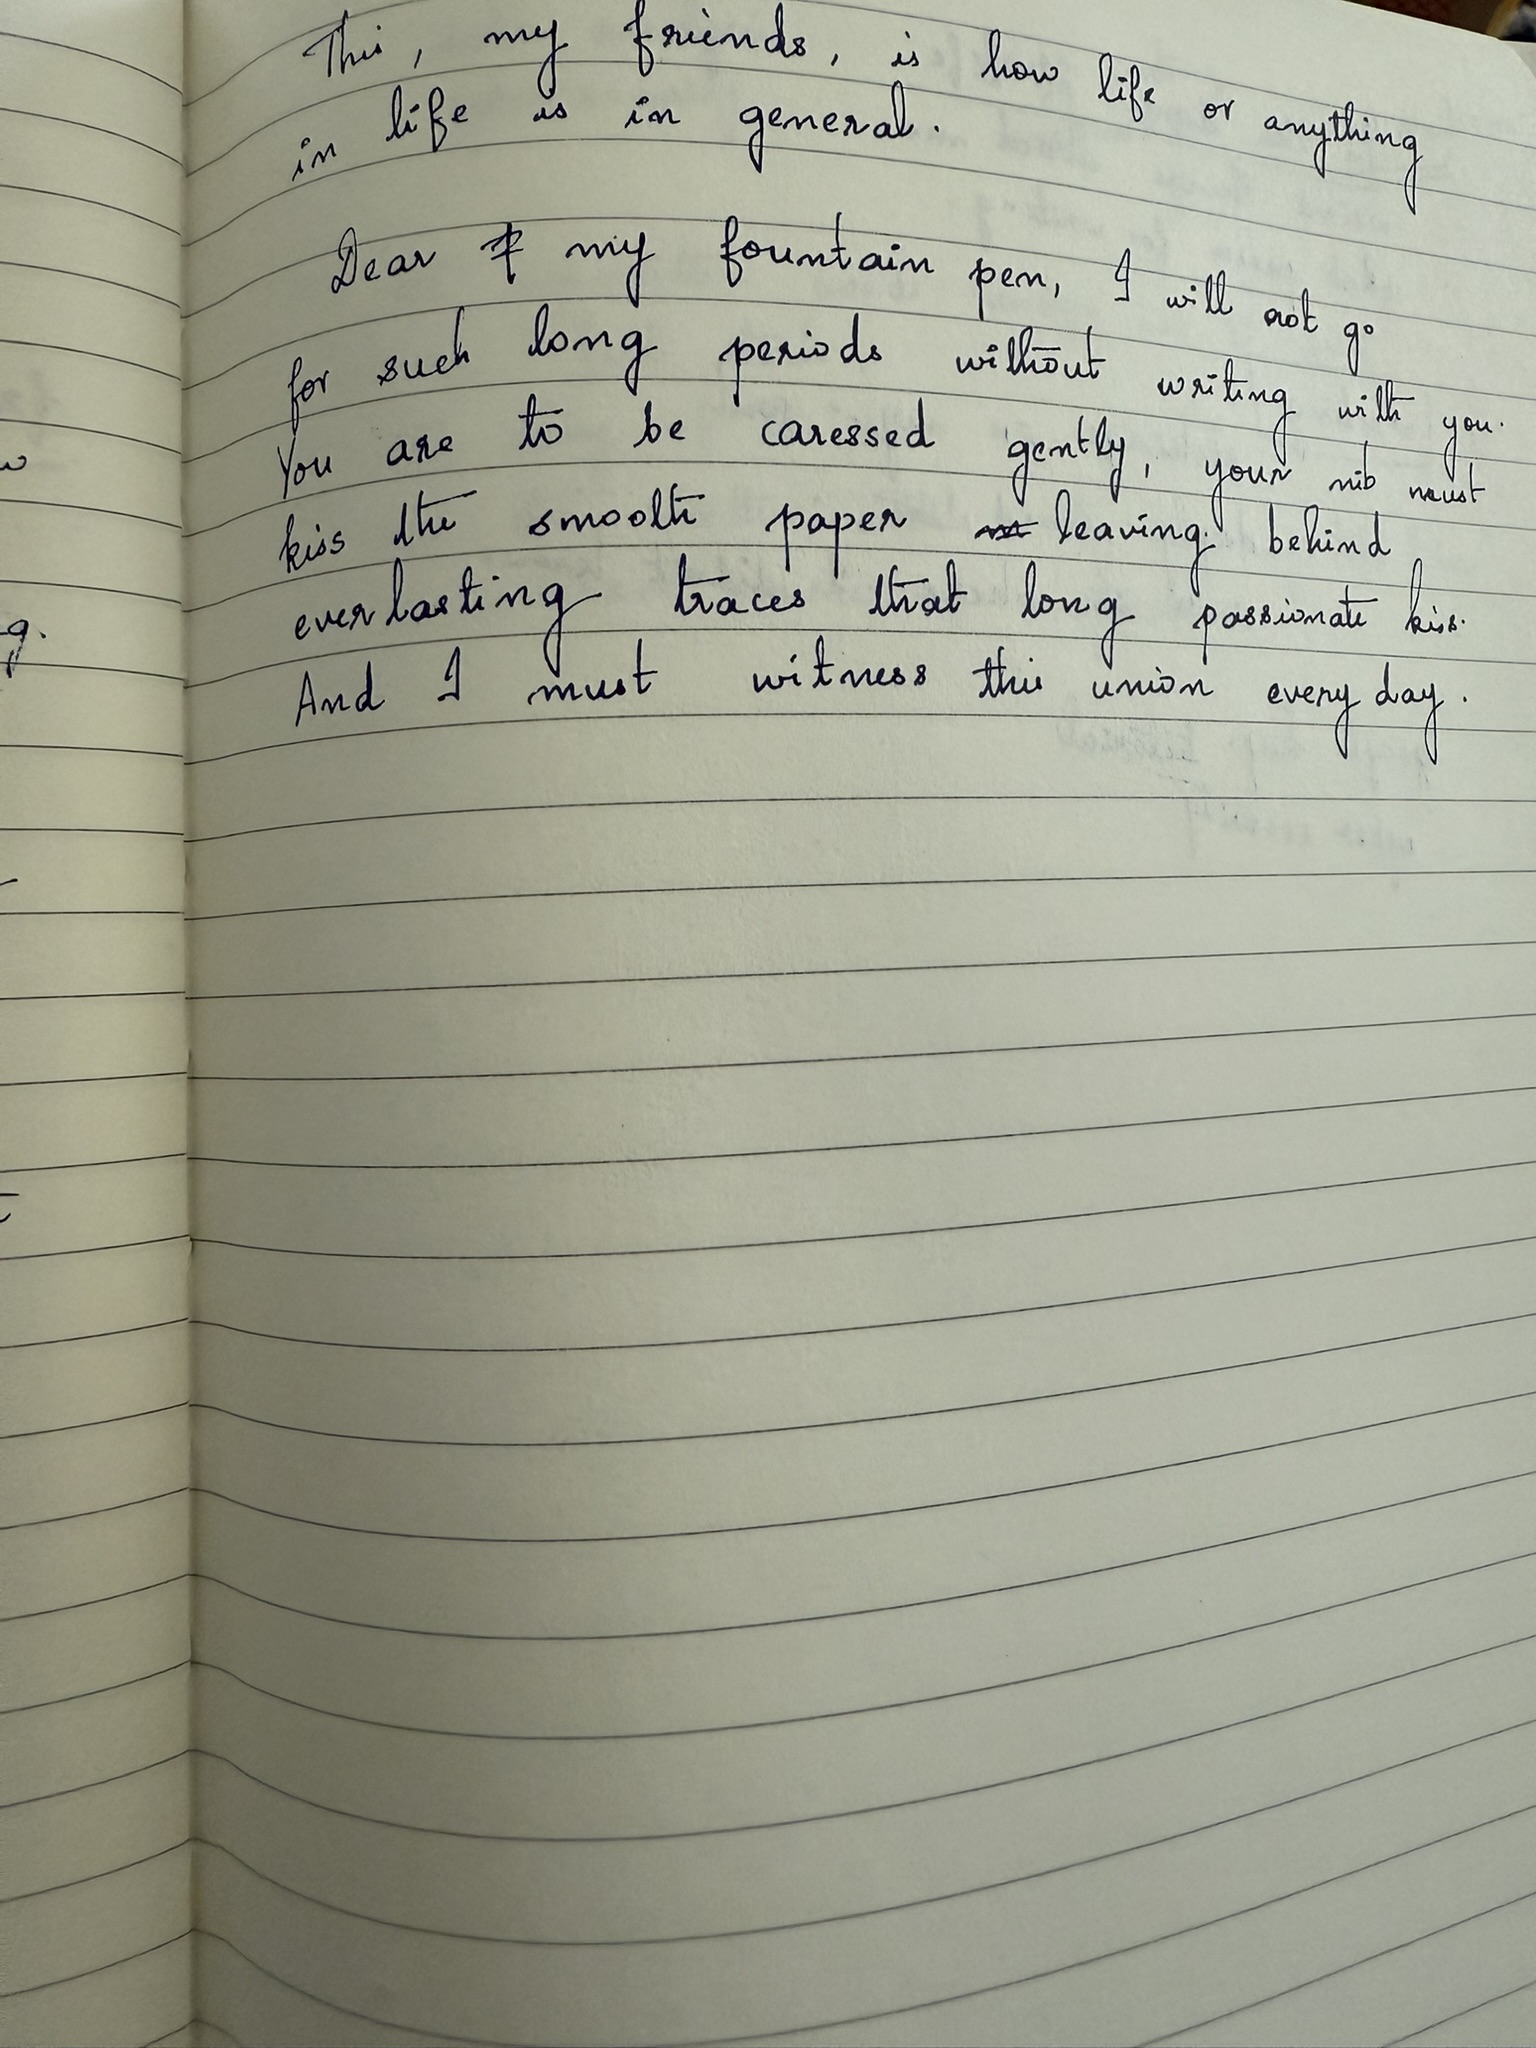 This, my friends, is how life or anything
in life is in general.
Dear my fountain pen, I will not go
for such long periods without writing with you.
You are to be caressed gently, your nib must
kiss the smooth paper leaving behind
everlasting traces that long passionate kiss.
And I must witness this union every day.
g.